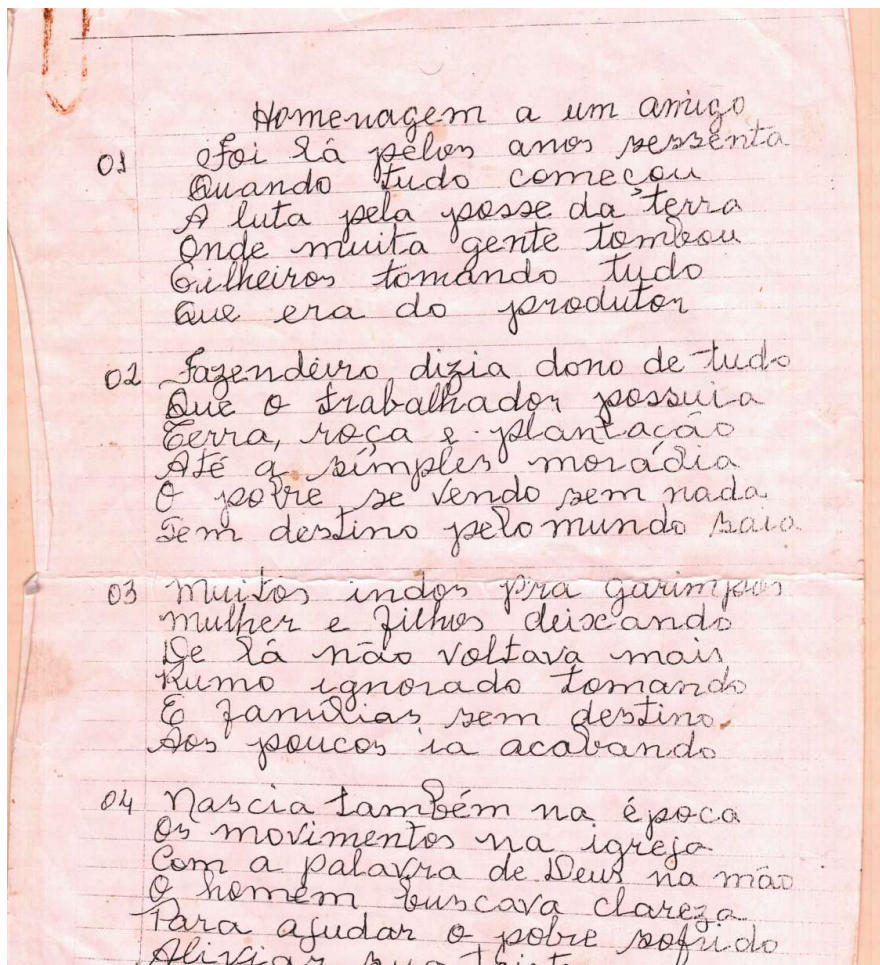 Homenagem a um amigo
01 Foi lá pelos anos sessenta
Quando tudo começou
A luta pela posse da terra
Onde muita gente tombou
Grilheiros tomando tudo
Que era do produtor
02 Fazendeiro dizia dono de tudo
Que o trabalhador possuia
Terra, roça e plantação
Até a simples morádia
O pobre se vendo sem nada
Sem destino pelo mundo saia
03 Muitos indos pra garimpos
Mulher e filhos deixando
De lá não voltava mais
Rumo ignorado tomando
E famílias sem destino
Aos poucos ia acabando
04 Nascia também na época
Os movimentos na igreja
Com a palavra de Deus na mão
O homem buscava clareza
Para ajudar o pobre sofrido
Aliviar sua